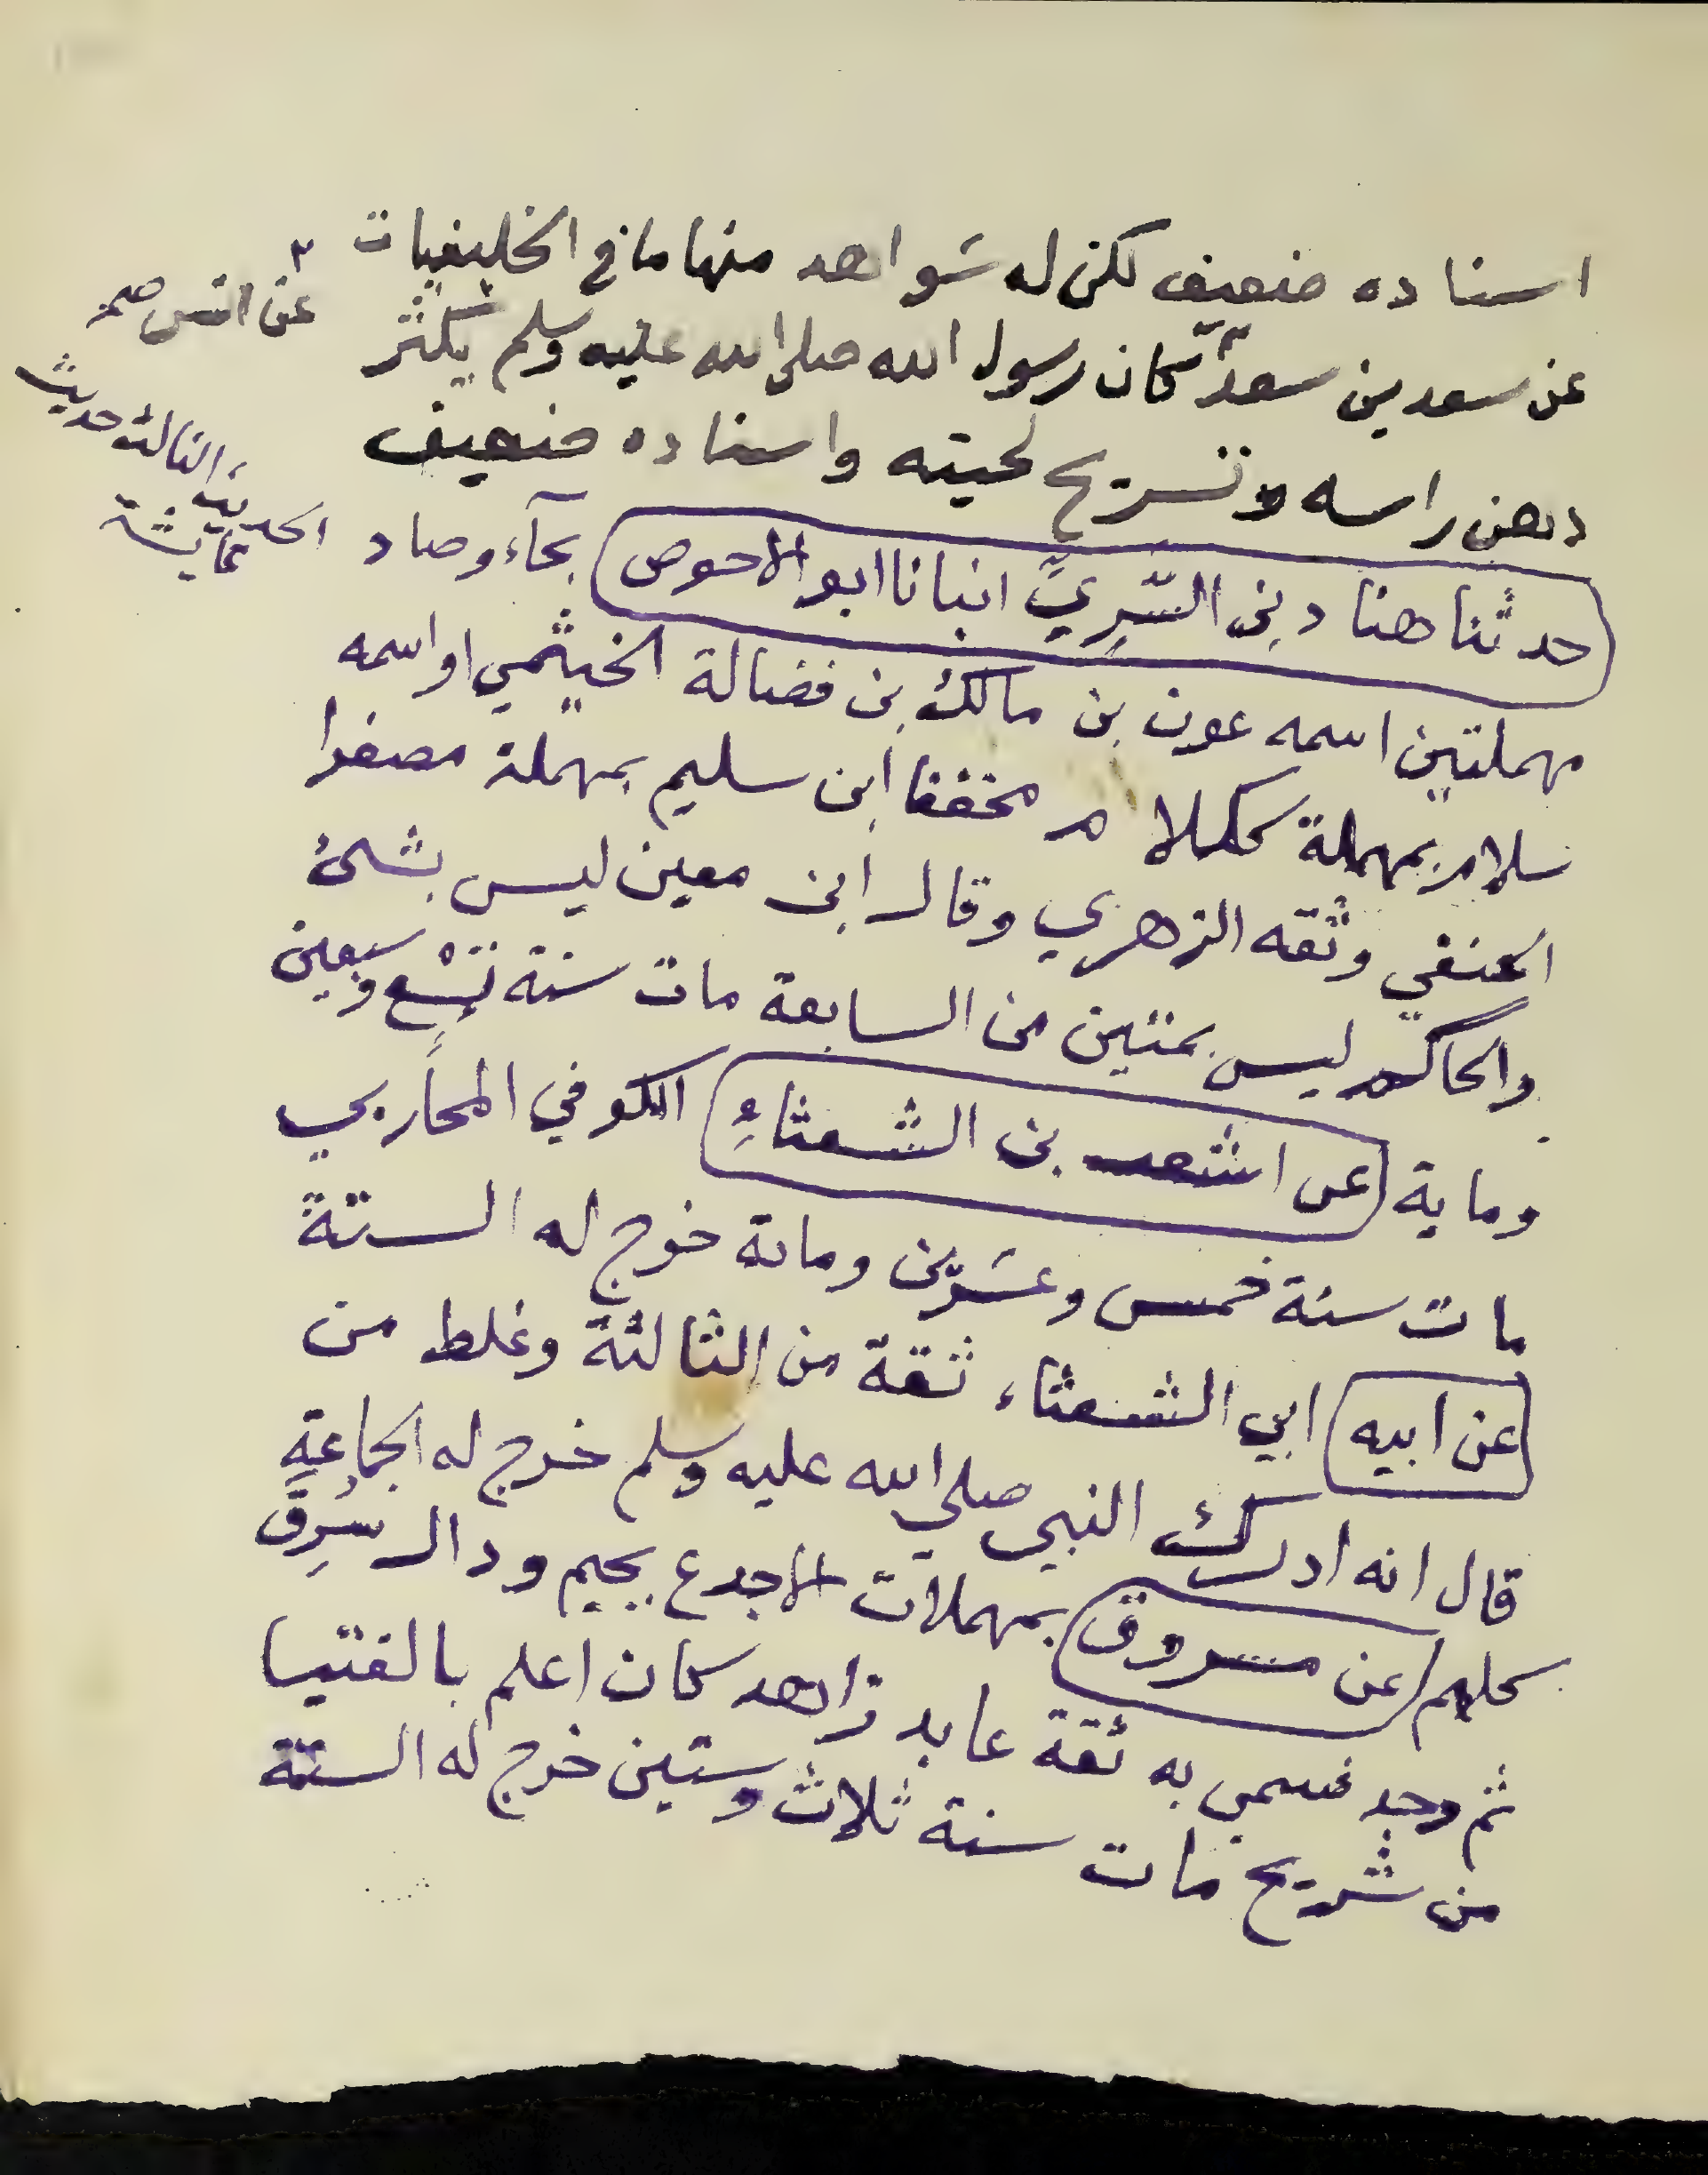 اسناده ضعيف لكن له شواهد منها ما في الخليفيات
عن سعد بن سعد كان رسول الله صلى الله عليه وسلم يكثر
عن انس صح
دهن راسه وتسريح لحيته واسناده ضعيف
الحديث الثالث حديث
عايشة
حدثنا هناد بن السّرِيِّ انبانا ابو الاحوص بحآء وصاد
مهملتين اسمه عون بن مالك بن فضالة الخيثمي او اسمه
سلام بمهملة ككلام مخففا ابن سليم بمهملة مصغرا
الحنفي وثقه الزهري وقال ابن معين ليس بشئ
والحاكم ليس بمتين من السابعة مات سنة تسْع وسبعين
وماية عن اشعث بن الشعثاءِ الكوفي المحاربي
مات سنة خمس وعشرين ومائة خرج له الستة
عن ابيه ابي الشعثاء ثقة من الثالثة وغلط من
قال انه ادرك النبي صلى الله عليه وسلم خرج له الجماعة
كلهم عن مسروق بمهملات الاجدع بجيم ودال سُرِقَ
ثم وجد فسمي به ثقة عابد زاهد كان اعلم بالفتيا
من شريح مات سنة ثلاث وستين خرج له الستة